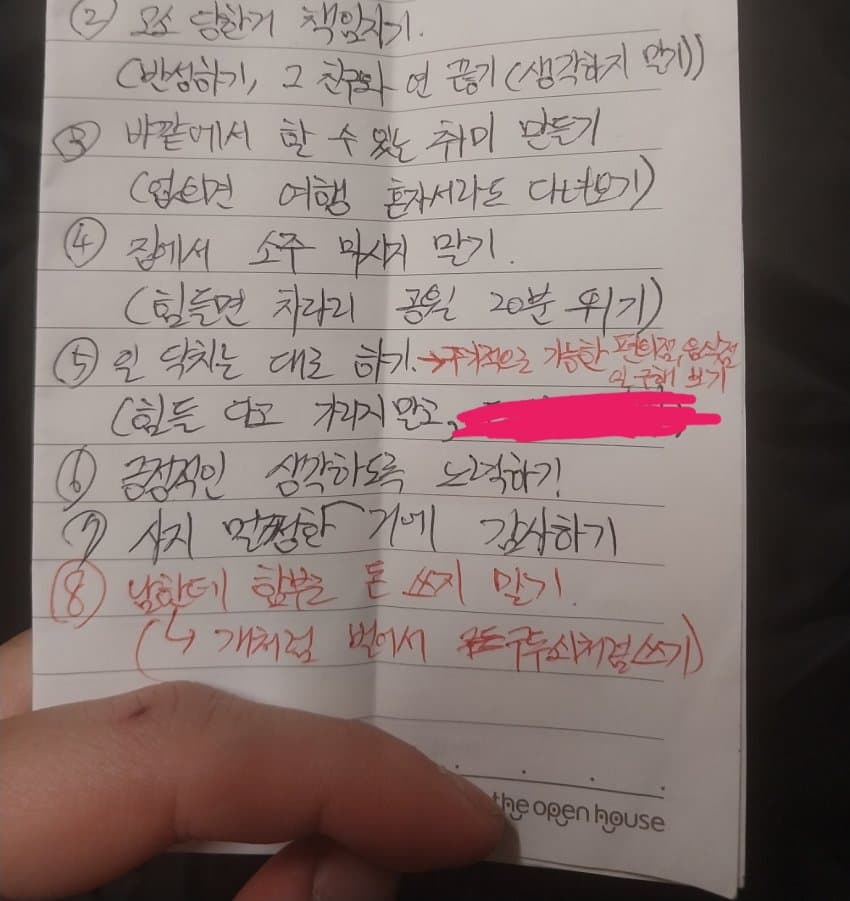 ② 모소 당한거 책임지기.
(반성하기, 그 친구와 연 끊기 (생각하지 말기))
③ 바깥에서 할 수 있는 취미 만들기
(없으면 여행 혼자서라도 다녀보기)
④ 집에서 소주 마시지 말기.
(힘들면 차라리 공원 20분 뛰기)
⑤ 일 닥치는 대로 하기. → 주기적으로 가능한 편의점, 음식점
일 구해 보기
(힘들다고 가리지 말고,
⑥ 긍정적인 생각하도록 노력하기!
⑦ 사지 멀쩡한 거에 감사하기
⑧ 남한테 함부로 돈 쓰지 말기.
(↳ 개처럼 벌어서 구두쇠처럼 쓰기)
the open house